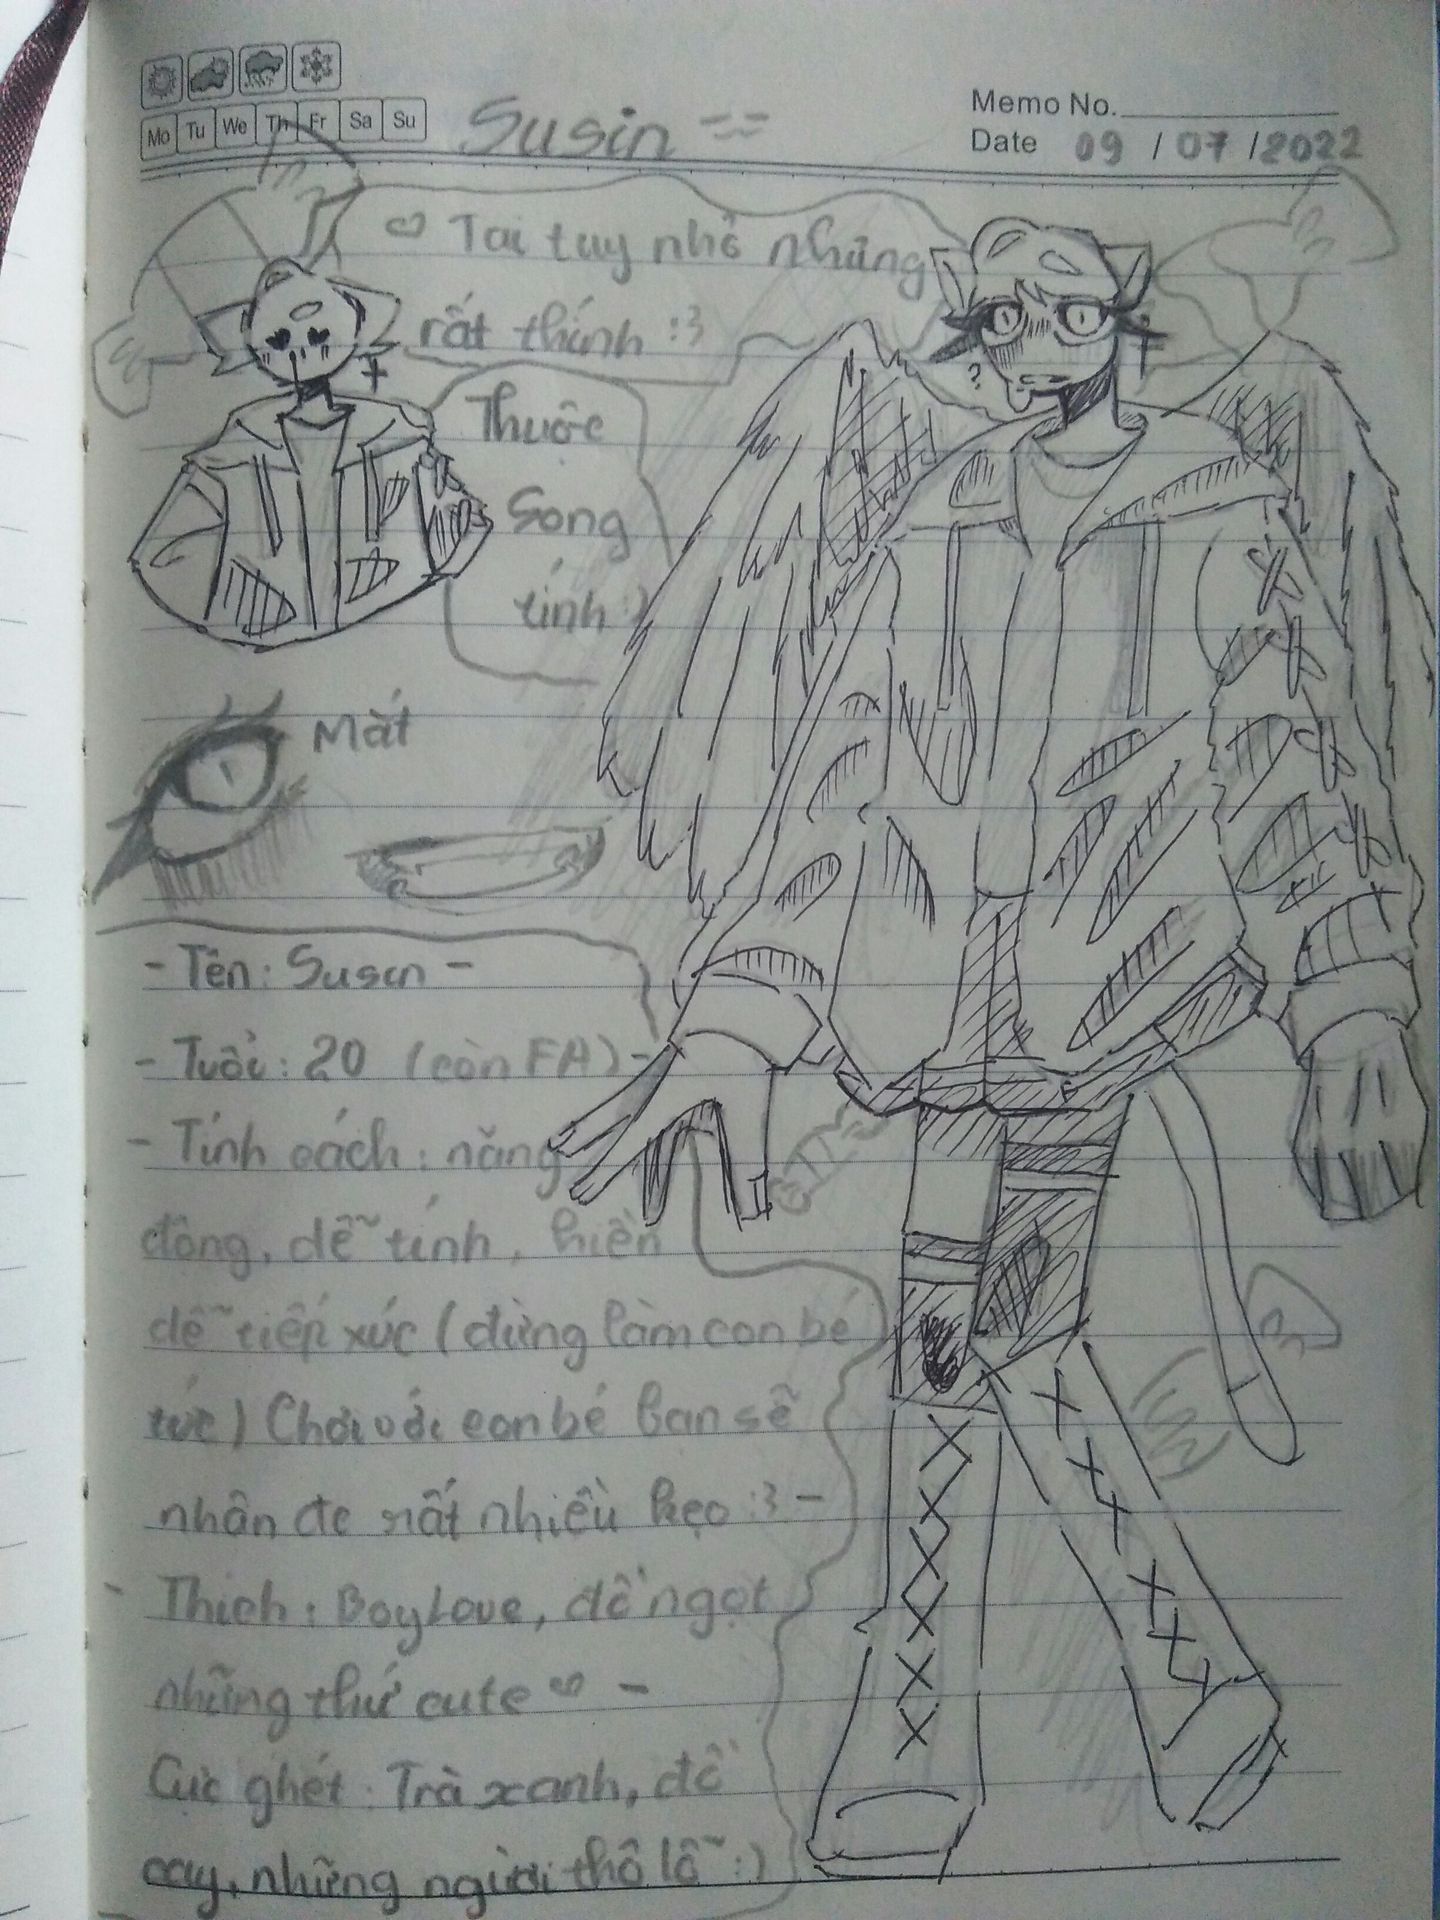 Mo Tu We Th Fr Sa Su
Susin
Memo No.
Date 09 / 07 / 2022
Tai tuy nhỏ nhưng
rất thính :3
Thuộc
Song
tính :)
Mắt
?
- Tên: Susin -
- Tuổi: 20 (còn FA) -
- Tính cách: năng
động, dễ tính, hiền
dễ tiếp xúc (đừng làm con bé
tức) Chơi với con bé bạn sẽ
nhân đc rất nhiều kẹo :3 -
- Thích: BoyLove, đồ ngọt
những thứ cute -
Cực ghét: Trà xanh, đồ
cay, những người thô lỗ :)